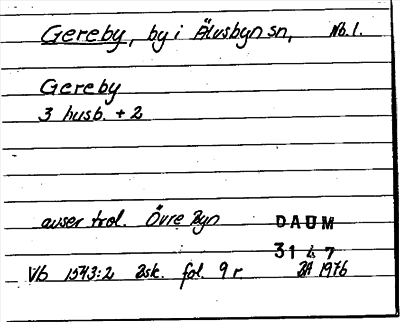 Gereby, by i Älvsbyn sn, Nb.
Gereby
3 husb. + 2
avser trol. Övre Byn
DAUM
31 4 7
Vb 1543:2 Bsk. fol. 9 r. BA 1976